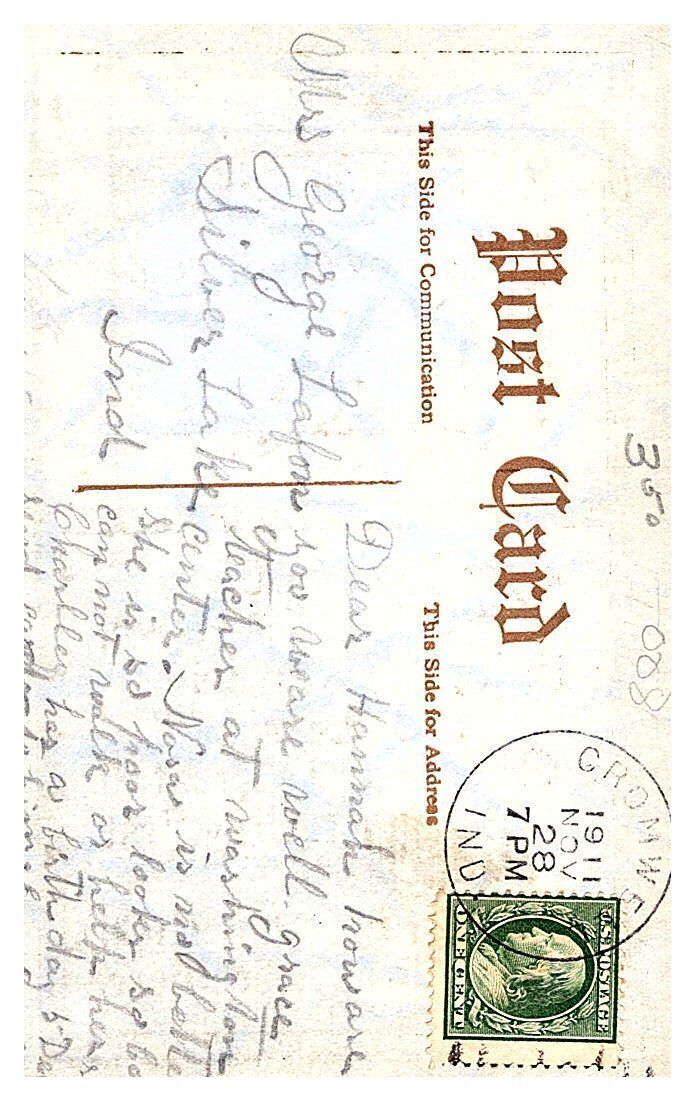 Post Card
This Side for Communication
This Side for Address
350
008
CROMWE
1911
NOV
28
7 PM
IND
U.S. POSTAGE
ONE CENT
Mrs George Lafon
Silver Lake
Ind
Dear Hannah how are
you we are well. grace
teacher at washington
center. Nora is not bette
she is so poor looks so ba
can not walk or help hers
Charlley has a birth day 5 De
send